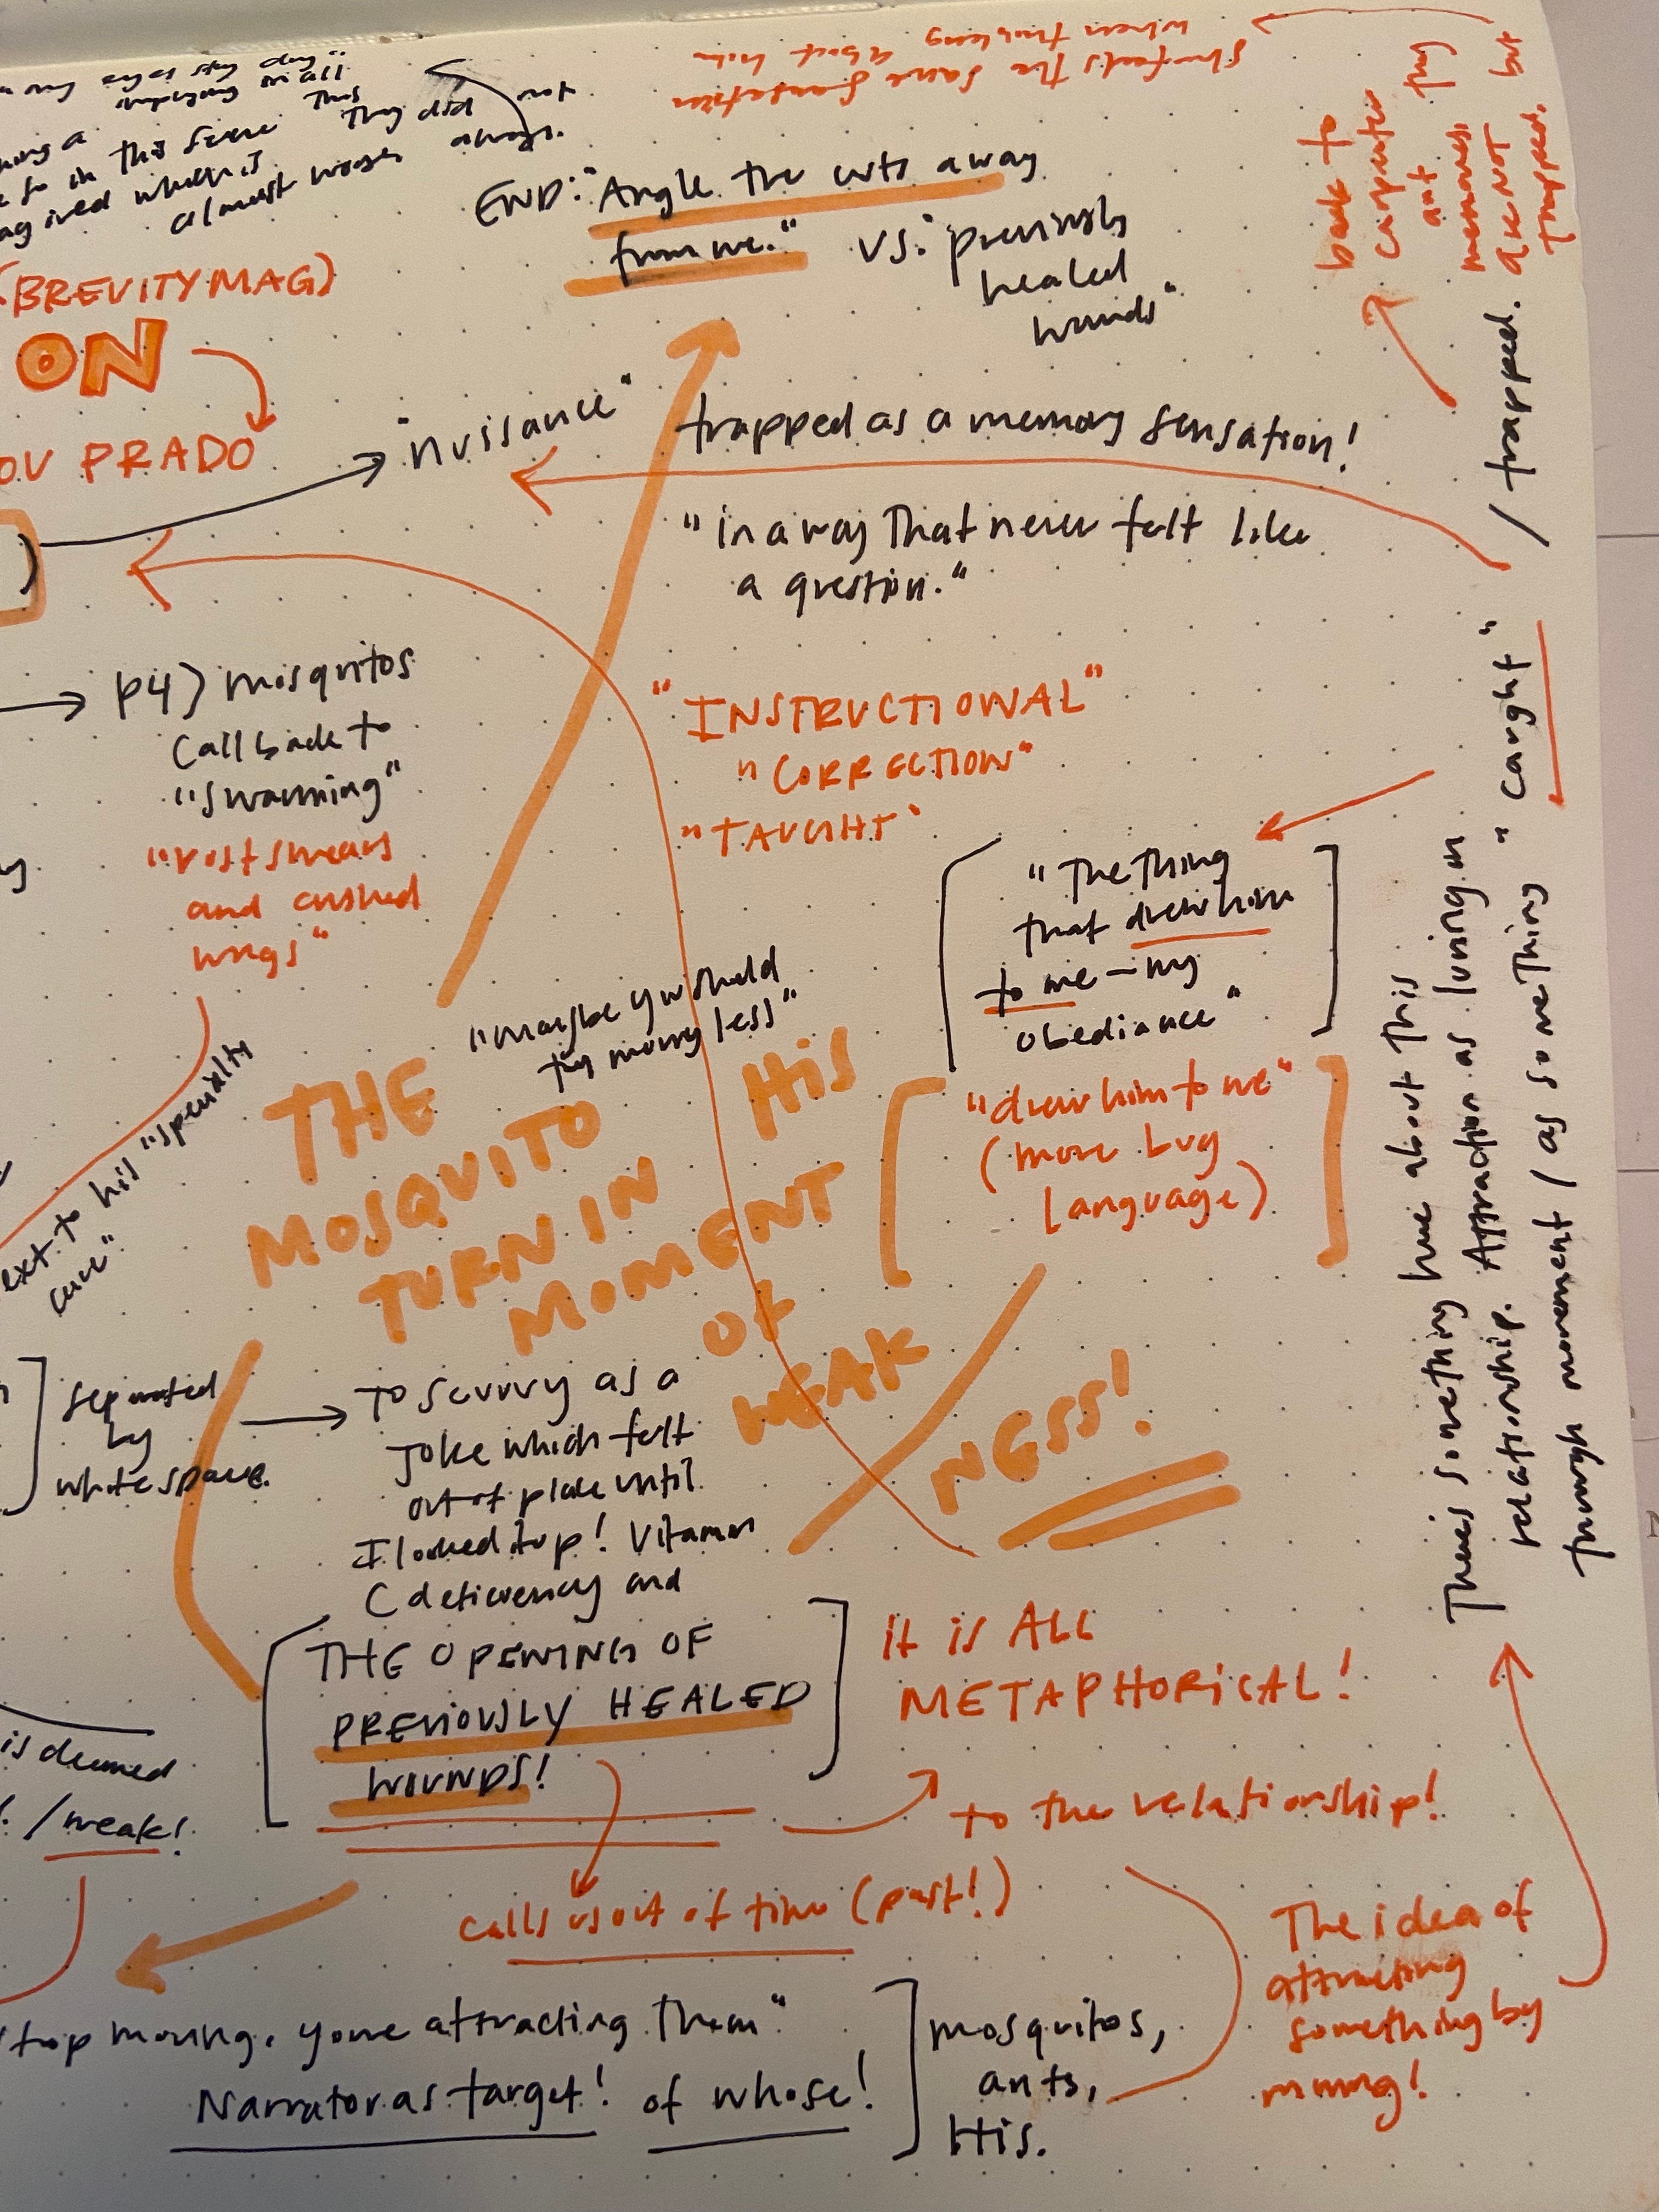 She feels the same sensation
when thinking about him
my eyes stay dry
implying in all
this
in this scene they did not
when is
almost always
always.
END: "Angle the cuts away
from me."
vs. previously
healed
wounds"
back to
carpenter
ant they
memories
are NOT but
trapped.
(BREVITYMAG)
ON
OV PRADO
"nuisance"
trapped as a memory sensation!
"in a way that never felt like
a question."
→ P4) mosquitos
Call back to
"swarming"
"rust smears
and crushed
wings"
"INSTRUCTIONAL"
"CORRECTION"
"TAUGHT"
"The thing
that drew him
to me – my
obediance"
"drew him to me"
(more bug
language)
"maybe you should
try moving less"
THE
MOSQUITO
TURN IN HIS
MOMENT
OF
WEAK
NESS!
ext to his "specialty
cure".
separated
by
white space.
→ To scurvy as a
joke which felt
out of place until
I looked it up! Vitamin
C deficiency and
THE OPENING OF
PREVIOUSLY HEALED
WOUNDS!
It is ALL
METAPHORICAL!
to the relationship!
is deemed
! / weak!
calls us out of time (past!)
top moving. you're attracting them"
Narrator as target! of whose!
mosquitos,
ants,
His.
The idea of
attracting
something by
moving!
There's something here about this
relationship. Attraction as luring in
through movement / as something "caught"
/ trapped.